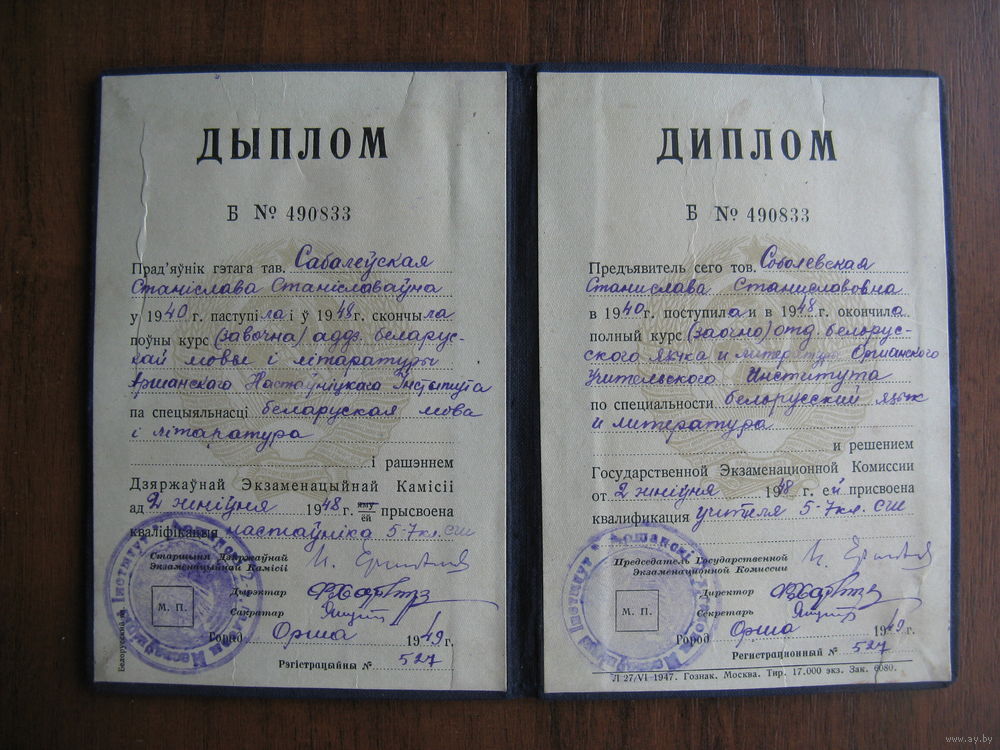 ДЫПЛОМ
Б № 490833
Прад'яўнік гэтага тав. Сабалеўская
Станіслава Станіславаўна
у 1940 г. паступіла і ў 1948 г. скончыла
поўны курс (завочна) адз. беларус-
кай мовы і літаратуры
Аршанскаго Настаўніцкаго Інстытута
па спецыяльнасці беларуская мова
і літаратура
і рашэннем
Дзяржаўнай Экзаменацыйнай Камісіі
ад 2 жніўня 1948 г. яму ёй прысвоена
кваліфікацыя настаўніка 5-7 кл. СШ
Старшыня Дзяржаўнай
Экзаменацыйнай Камісіі
Дырэктар
Сакратар
М. П.
Горад Орша 1949 г.
Рэгістрацыйны № 527
Белорусский яз.
ДИПЛОМ
Б № 490833
Предъявитель сего тов. Соболевская
Станислава Станиславовна
в 1940 г. поступила и в 1948 г. окончила
полный курс (заочно) отд. белорус-
ского языка и литературы Оршанского
Учительского Института
по специальности белорусский язык
и литература
и решением
Государственной Экзаменационной Комиссии
от 2 жніўня 1948 г. ей присвоена
квалификация учителя 5-7 кл. СШ
Председатель Государственной
Экзаменационной Комиссии
Директор
Секретарь
М. П.
Город Орша 1949 г.
Регистрационный № 527
Л 27/VI 1947. Гознак. Москва. Тир. 17.000 экз. Зак. 6080.
www.ay.by